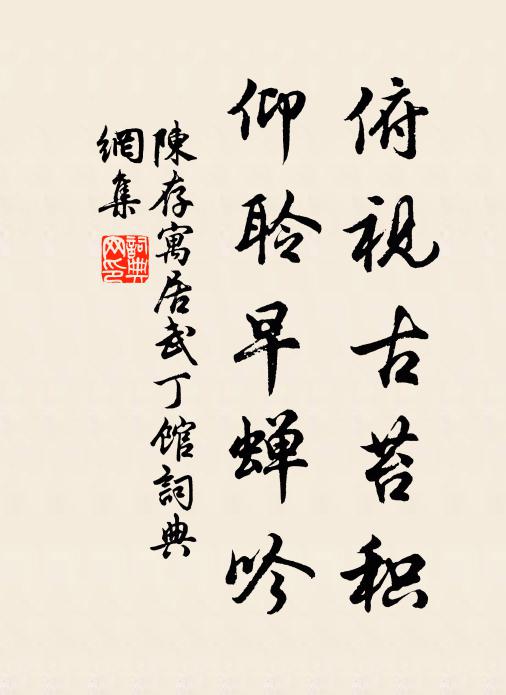 俯视古苔积
仰聆早蝉吟
陳存寓居武丁馆詞典
網集
詞典网印